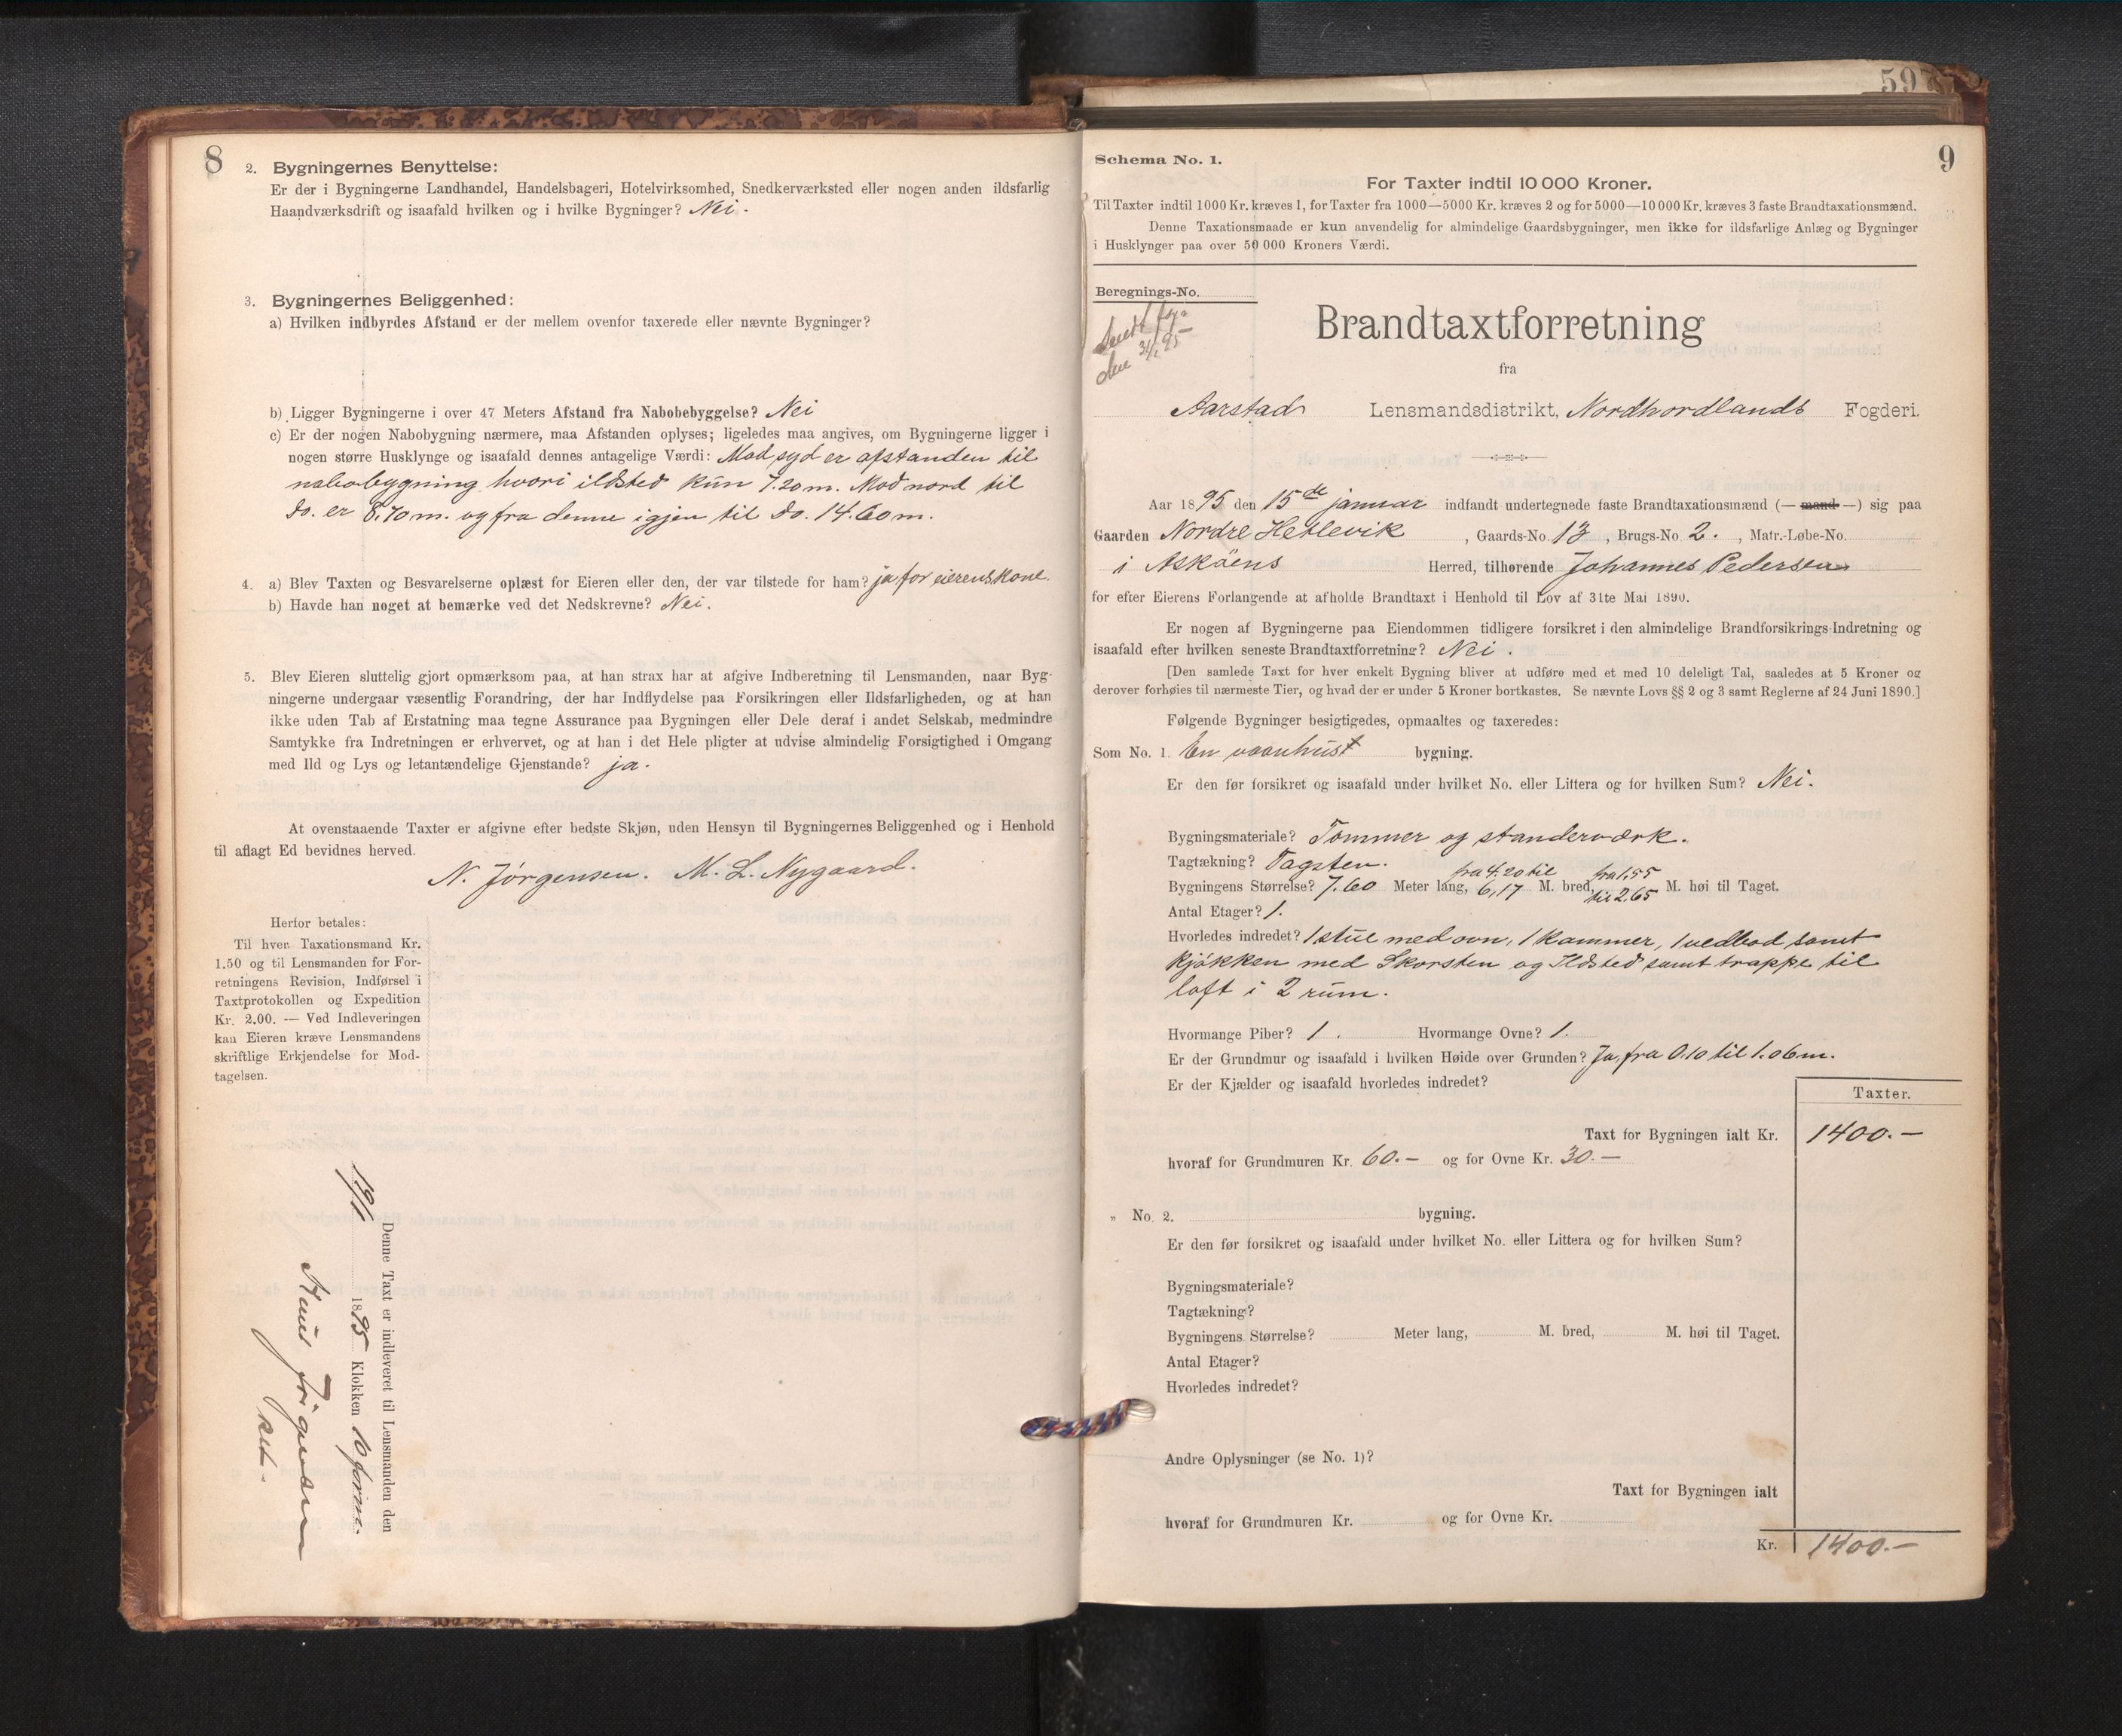 8
2. Bygningernes Benyttelse:
Er der i Bygningerne Landhandel, Handelsbageri, Hotelvirksomhed, Snedkerværksted eller nogen anden ildsfarlig
Haandværksdrift og isaafald hvilken og i hvilke Bygninger? Nei.
3. Bygningernes Beliggenhed:
a) Hvilken indbyrdes Afstand er der mellem ovenfor taxerede eller nævnte Bygninger?
b) Ligger Bygningerne i over 47 Meters Afstand fra Nabobebyggelse? Nei
c) Er der nogen Nabobygning nærmere, maa Afstanden oplyses; ligeledes maa angives, om Bygningerne ligger i
nogen større Husklynge og isaafald dennes antagelige Værdi: Mod syd er afstanden til
nabobygning hvori ildsted kun 7.20 m. Mod nord til
do. er 8.70 m. og fra denne igjen til do. 14.60 m.
4. a) Blev Taxten og Besvarelserne oplæst for Eieren eller den, der var tilstede for ham? ja for eierens kone.
b) Havde han noget at bemærke ved det Nedskrevne? Nei.
5. Blev Eieren sluttelig gjort opmærksom paa, at han strax har at afgive Indberetning til Lensmanden, naar Byg-
ningerne undergaar væsentlig Forandring, der har Indflydelse paa Forsikringen eller Ildsfarligheden, og at han
ikke uden Tab af Erstatning maa tegne Assurance paa Bygningen eller Dele deraf i andet Selskab, medmindre
Samtykke fra Indretningen er erhvervet, og at han i det Hele pligter at udvise almindelig Forsigtighed i Omgang
med Ild og Lys og letantændelige Gjenstande? ja.
At ovenstaaende Taxter er afgivne efter bedste Skjøn, uden Hensyn til Bygningernes Beliggenhed og i Henhold
til aflagt Ed bevidnes herved.
N. Jørgensen. M. L. Nygaard.
Herfor betales:
Til hver Taxationsmand Kr.
1.50 og til Lensmanden for For-
retningens Revision, Indførsel i
Taxtprotokollen og Expedition
Kr. 2.00. — Ved Indleveringen
kan Eieren kræve Lensmandens
skriftlige Erkjendelse for Mod-
tagelsen.
Denne Taxt er indleveret til Lensmanden den
19/1 1895 Klokken 10 form.
Knud Jørgensen
597
9
Schema No. 1.
For Taxter indtil 10 000 Kroner.
Til Taxter indtil 1000 Kr. kræves 1, for Taxter fra 1000—5000 Kr. kræves 2 og for 5000—10 000 Kr. kræves 3 faste Brandtaxationsmænd.
Denne Taxationsmaade er kun anvendelig for almindelige Gaardsbygninger, men ikke for ildsfarlige Anlæg og Bygninger
i Husklynger paa over 50 000 Kroners Værdi.
Beregnings-No.
den 31/1 95
Brandtaxtforretning
fra
Aarstad Lensmandsdistrikt, Nordhordlands Fogderi.
Aar 1895 den 15de januar indfandt undertegnede faste Brandtaxationsmænd (— mand —) sig paa
Gaarden Nordre Hetlevik, Gaards-No. 13, Brugs-No. 2., Matr.-Løbe-No.
i Askøens Herred, tilhørende Johannes Pedersen
for efter Eierens Forlangende at afholde Brandtaxt i Henhold til Lov af 31te Mai 1890.
Er nogen af Bygningerne paa Eiendommen tidligere forsikret i den almindelige Brandforsikrings-Indretning og
isaafald efter hvilken seneste Brandtaxtforretning? Nei.
[Den samlede Taxt for hver enkelt Bygning bliver at udføre med et med 10 deleligt Tal, saaledes at 5 Kroner og
derover forhøies til nærmeste Tier, og hvad der er under 5 Kroner bortkastes. Se nævnte Lovs §§ 2 og 3 samt Reglerne af 24 Juni 1890.]
Følgende Bygninger besigtigedes, opmaaltes og taxeredes:
Som No. 1. En vaanhust bygning.
Er den før forsikret og isaafald under hvilket No. eller Littera og for hvilken Sum? Nei.
Bygningsmateriale? Tømmer og standerværk.
Tagtækning? Tagsten.
Bygningens Størrelse? 7.60 Meter lang, fra 4.20 til 6,17 M. bred, fra 1,55 til 2.65 M. høi til Taget.
Antal Etager? 1.
Hvorledes indredet? 1 stue med ovn, 1 kammer, 1 vedbod samt
kjøkken med Skorsten og Ildsted samt trappe til
loft i 2 rum.
Hvormange Piber? 1. Hvormange Ovne? 1.
Er der Grundmur og isaafald i hvilken Høide over Grunden? Ja, fra 0.10 til 1.06 m.
Er der Kjælder og isaafald hvorledes indredet?
Taxter.
Taxt for Bygningen ialt Kr. 1400.—
hvoraf for Grundmuren Kr. 60.— og for Ovne Kr. 30.—
„ No. 2. bygning.
Er den før forsikret og isaafald under hvilket No. eller Littera og for hvilken Sum?
Bygningsmateriale?
Tagtækning?
Bygningens Størrelse? Meter lang, M. bred, M. høi til Taget.
Antal Etager?
Hvorledes indredet?
Andre Oplysninger (se No. 1)?
Taxt for Bygningen ialt
hvoraf for Grundmuren Kr. og for Ovne Kr.
Kr. 1400.—